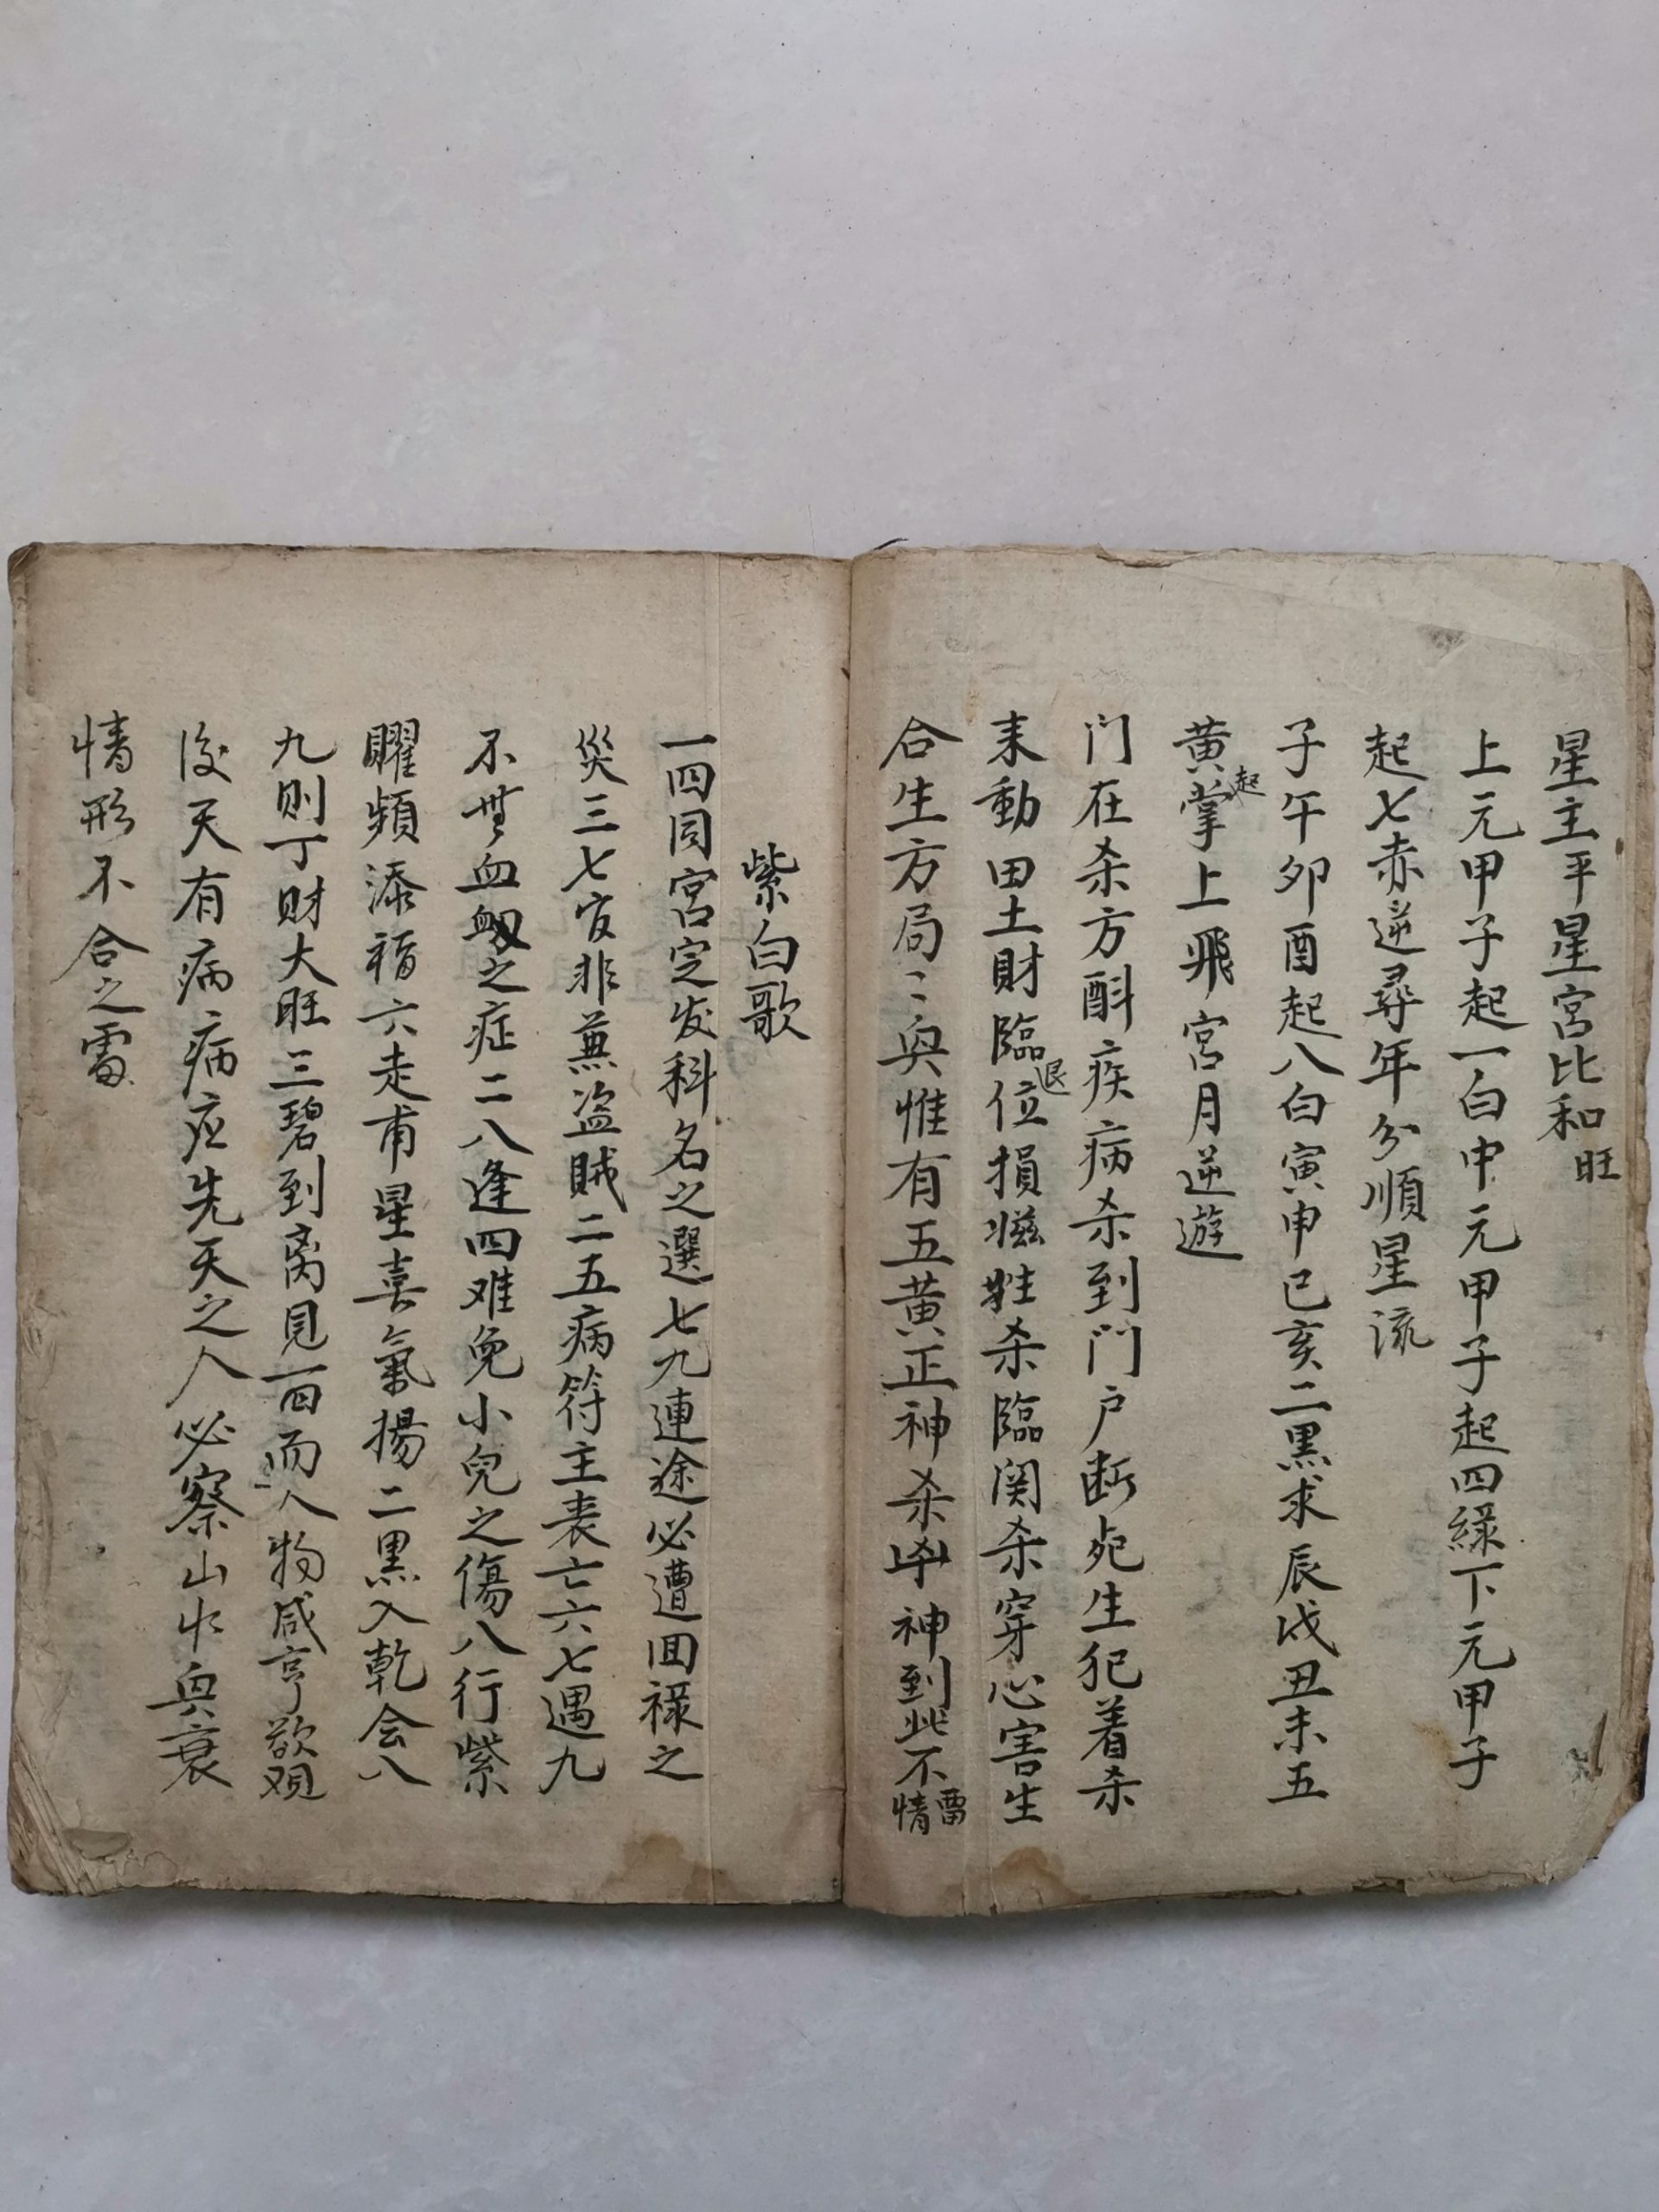 星主平星宮比和旺
上元甲子起一白中元甲子起四綠下元甲子
起七赤逆尋年分順星流
子午卯酉起八白寅申巳亥二黑求辰戌丑未五
黄起掌上飛宮月逆遊
门在杀方酙疾病杀到门户断死生犯着杀
来動田土財臨退位損牲杀臨関杀穿心害生
合生方局〻與惟有五黄正神杀凶神到此不留情
紫白歌
一四同宮定发科名之選七九連途必遭回祿之
災三七官非兼盗賊二五病符主丧亡六七遇九
不無血之症二八逢四难免小兒之傷八行紫
曜頻添福六走甫星喜氣揚二黑入乾会八
九則丁財大旺三碧到离見一四而人物咸亨欲观
後天有病病应先天之人必察山水與衰
情形不合之